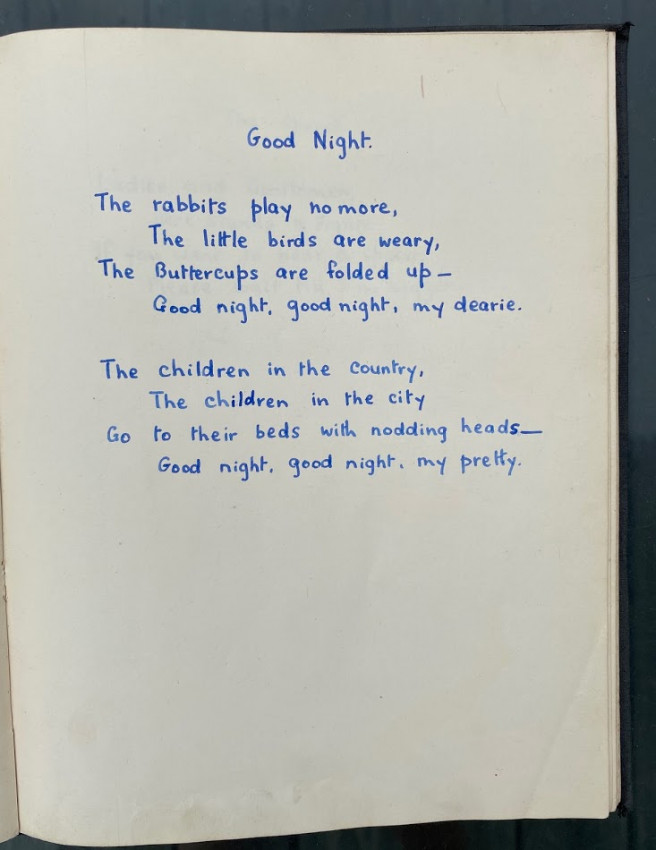 Good Night.
The rabbits play no more,
The little birds are weary,
The Buttercups are folded up—
Good night, good night, my dearie.
The children in the country,
The children in the city
Go to their beds with nodding heads—
Good night, good night, my pretty.